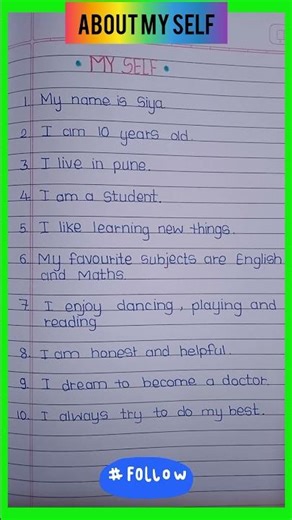 ABOUT MY SELF
• MY SELF •
1. My name is Siya
2. I am 10 years old.
3. I live in pune.
4. I am a student.
5. I like learning new things.
6. My favourite subjects are English
and Maths.
7. I enjoy dancing, playing and
reading
8. I am honest and helpful.
9. I dream to become a doctor.
10. I always try to do my best.
# FOLLOW